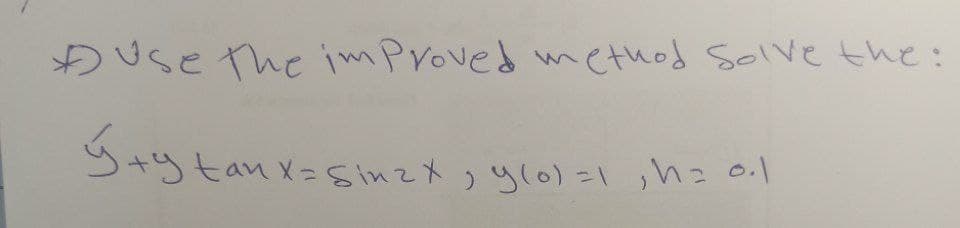 Use the improved method solve the:
ý + y tan x = sin 2x , y(0) = 1 , h = 0.1